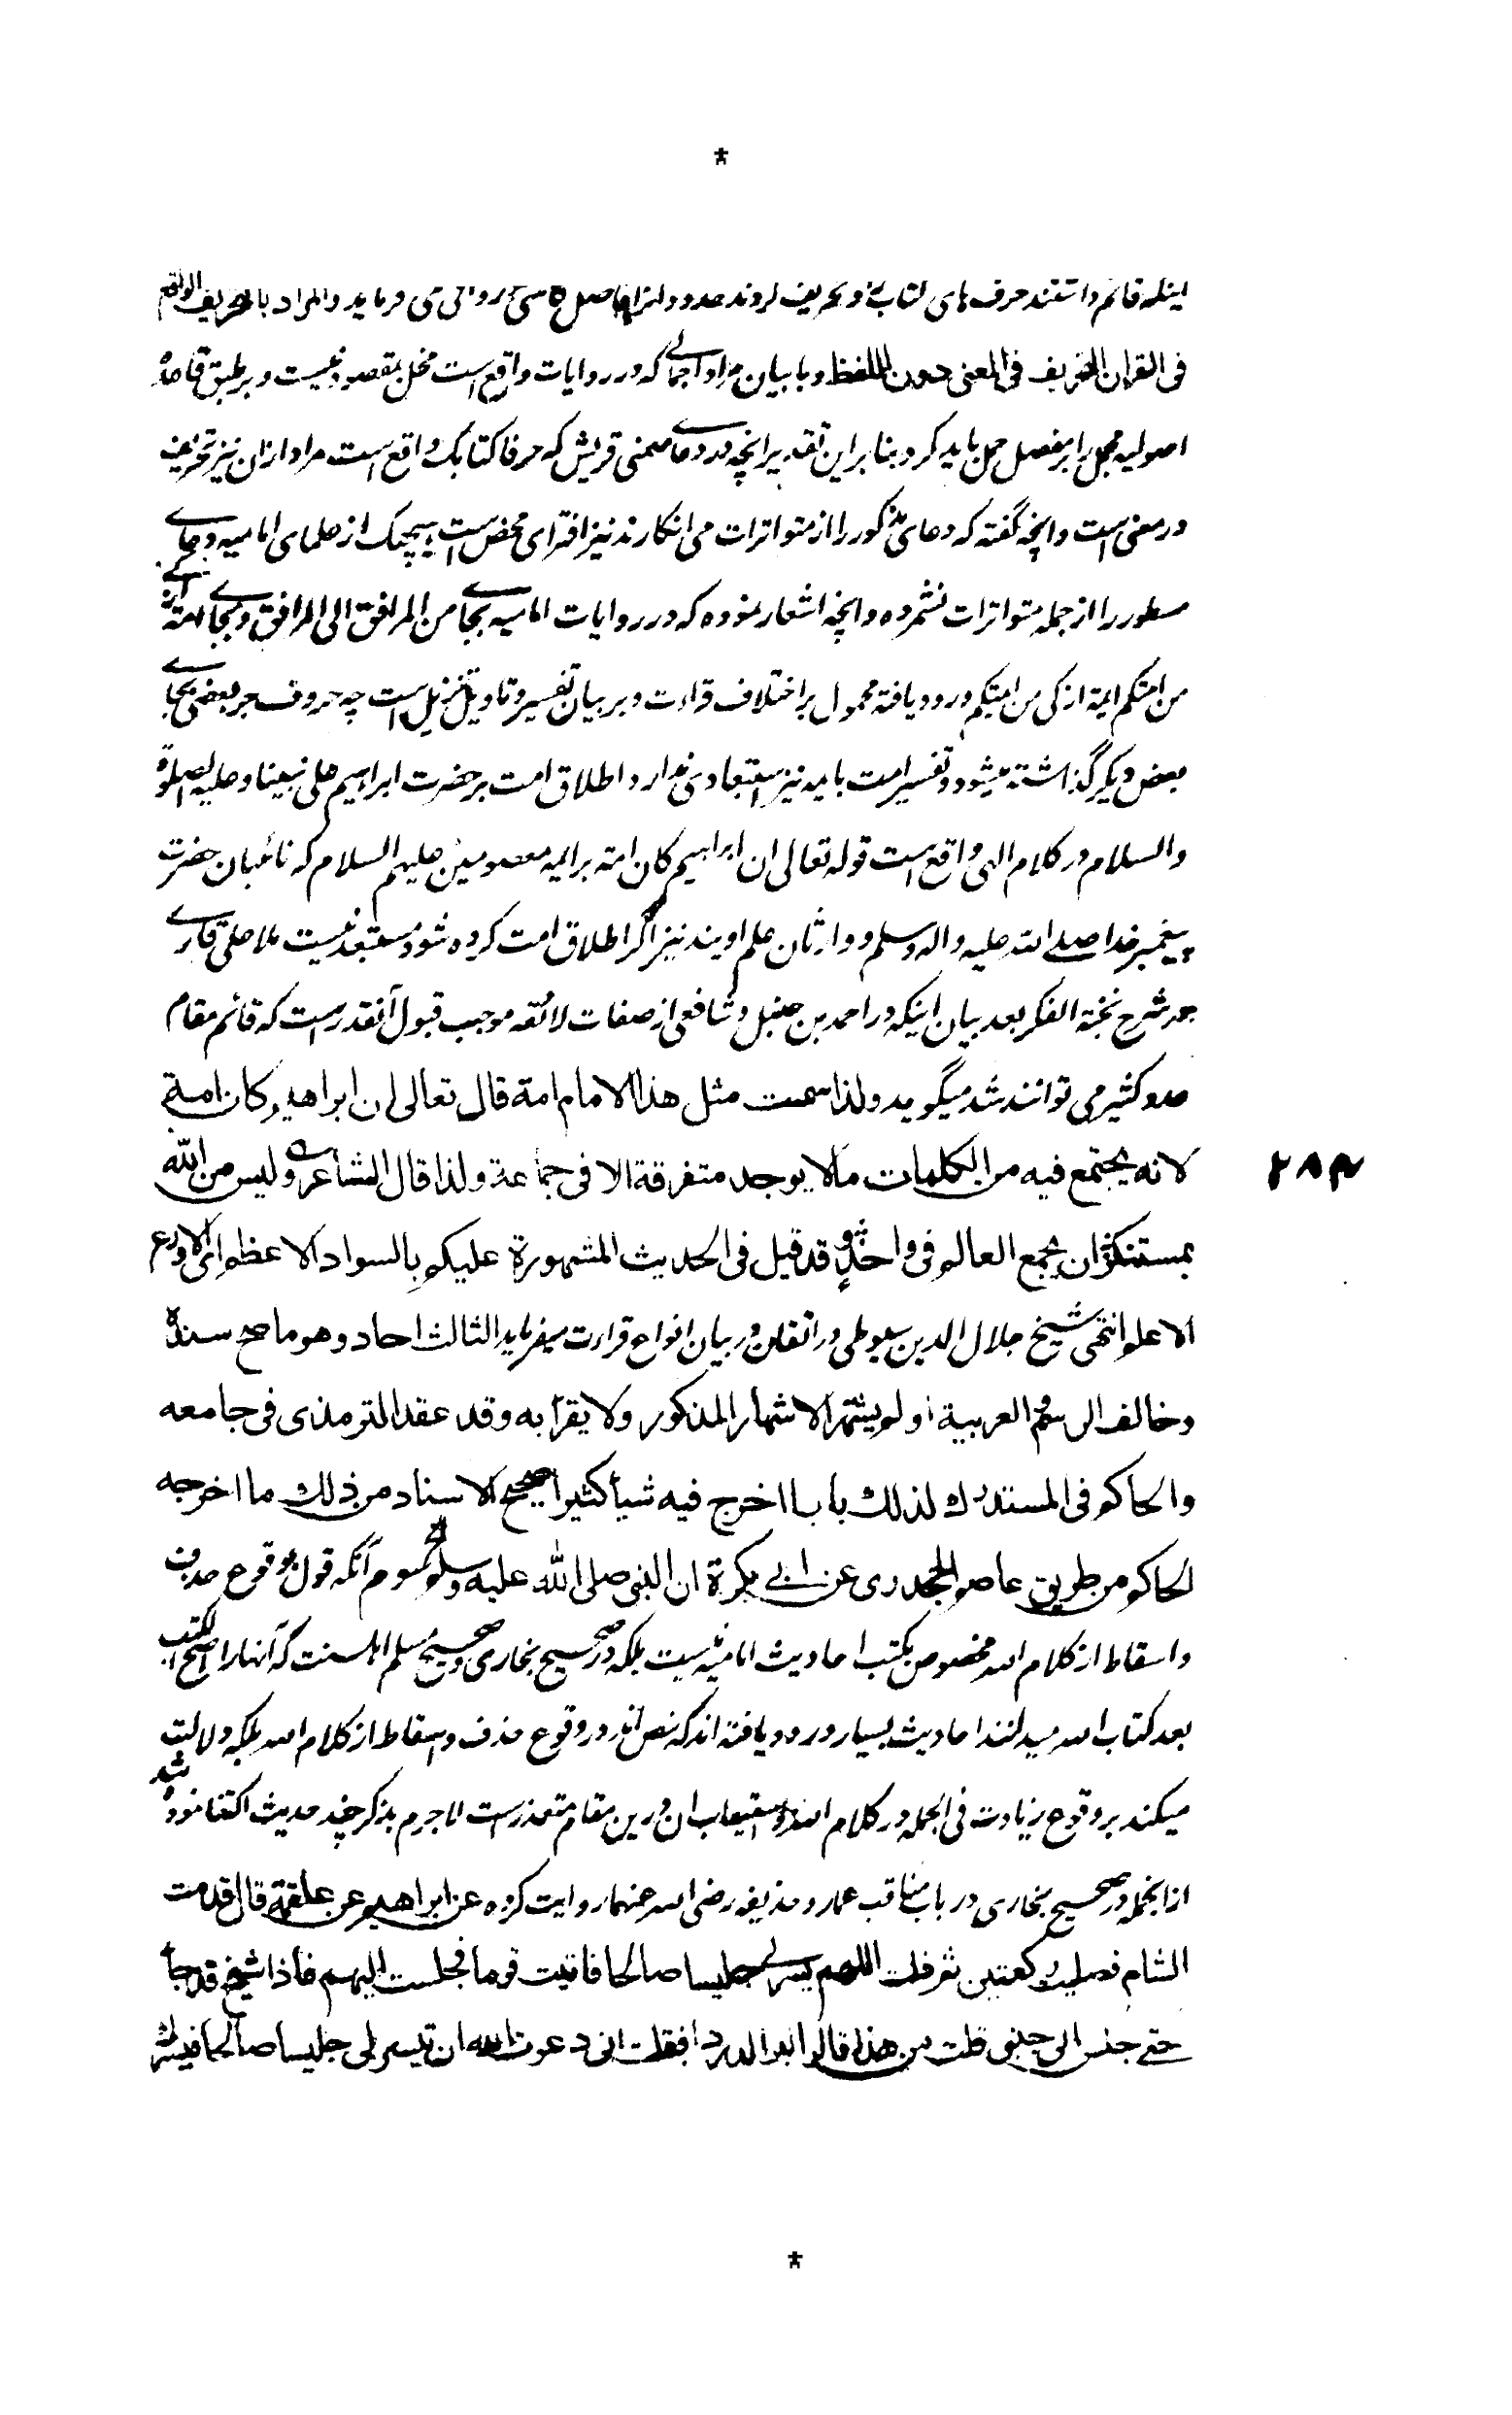 اینکه قائم داشتند حرف های کتاب و تحریف کردند حدود و لهذا فاضل کاشی در وافی می فرماید والمراد بالتحریف الواقع
فی القران التحریف فی المعنی دون اللفظ و با بیان مراد اجمالی که در روایات واقع است مخل بمقصود نیست و بر طبق قاعدهٔ
اصولیه مجمل را بر مفصل حمل باید کرد و بنابراین تقدیر انچه در دعای صنمی قریش که حرفا کتابک واقع است مراد ازان نیز تحریف
در معنی است و انچه گفته که دعای مذکور را از متواترات می انگارند نیز افترای محض است هیچیک از علمای امامیه دعای
مسطور را از جمله متواترات نشمرده و انچه اشعار نموده که در روایات امامیه بجای من المرافق الی المرافق و بجای امة
من امتکم ائمة ازکی من ائمتکم ورود یافته محمول بر اختلاف قراءت و بر بیان تفسیر و تاویل تنزیل است چه حروف جر بعضی بجای
بعض دیگر گذاشته میشود و تفسیر امت بایمه نیز استبعادی ندارد و اطلاق امت بر حضرت ابراهیم علی نبینا و علیه الصلوة
والسلام در کلام الهی واقع است قوله تعالی ان ابراهیم کان امة بر ایمه معصومین علیهم السلام که نائبان حضرت
پیغمبر خدا صلی الله علیه واله وسلم و وارثان علم اویند نیز اگر اطلاق امت کرده شود مستبعد نیست ملا علی قاری
در شرح نخبة الفکر بعد بیان اینکه در احمد بن حنبل و شافعی از صفات لائقه موجب قبول آنقدر است که قائم مقام
عدد کثیر می توانند شد میگوید ولذا سمیت مثل هذا الامام امة قال تعالی ان ابراهیم کان امة
لانه یجتمع فیه من الکلمات مالا یوجد متفرقة الا فی جماعة ولذا قال الشاعر ولیس من الله
بمستنکر ان یجمع العالم فی واحد و قد قیل فی الحدیث المشهورة علیکم بالسواد الاعظم ای الاورع
الاعلم انتهی شیخ جلال الدین سیوطی در اتقان در بیان انواع قراءت میفرماید الثالث احاد وهو ما صح سندهٗ
وخالف الرسم والعربیة او لم یشتهر الاشتهار المذکور ولا یقرأ به وقد عقد الترمذی فی جامعه
والحاکم فی المستدرك لذلك بابا اخرج فیه شیأ کثیرا صحیح الاسناد من ذلك ما اخرجه
الحاکم من طریق عاصم الجحدری عن ابی بکرة ان النبی صلی الله علیه وسلم الخ سوم آنکه قول بوقوع حذف
واسقاط از کلام الله مخصوص بکتب احادیث امامیه نیست بلکه در صحیح بخاری و صحیح مسلم اهلسنت که آنها را اصح الکتب
بعد کتاب الله میدانند احادیث بسیار ورود یافته اند که نص اند در وقوع حذف و اسقاط از کلام الله بلکه دلالت
میکند بر وقوع زیادت فی الجمله در کلام الله و استیعاب ان درین مقام متعذر است لاجرم بذکر چند حدیث اکتفا نموده شد
ازانجمله در صحیح بخاری در باب مناقب عمار و حذیفه رضی الله عنهما روایت کرده عن ابراهیم عن علقمة قال قدمت
الشام فصلیت رکعتین ثم قلت اللهم یسر لی جلیسا صالحا فاتیت قوما فجلست الیهم فاذا شیخ قد جاء
حتی جلس الی جنبی قلت من هذا قالوا ابوالدرداء فقلت انی دعوت الله ان تیسر لی جلیسا صالحا فیسرك
۲۸۴